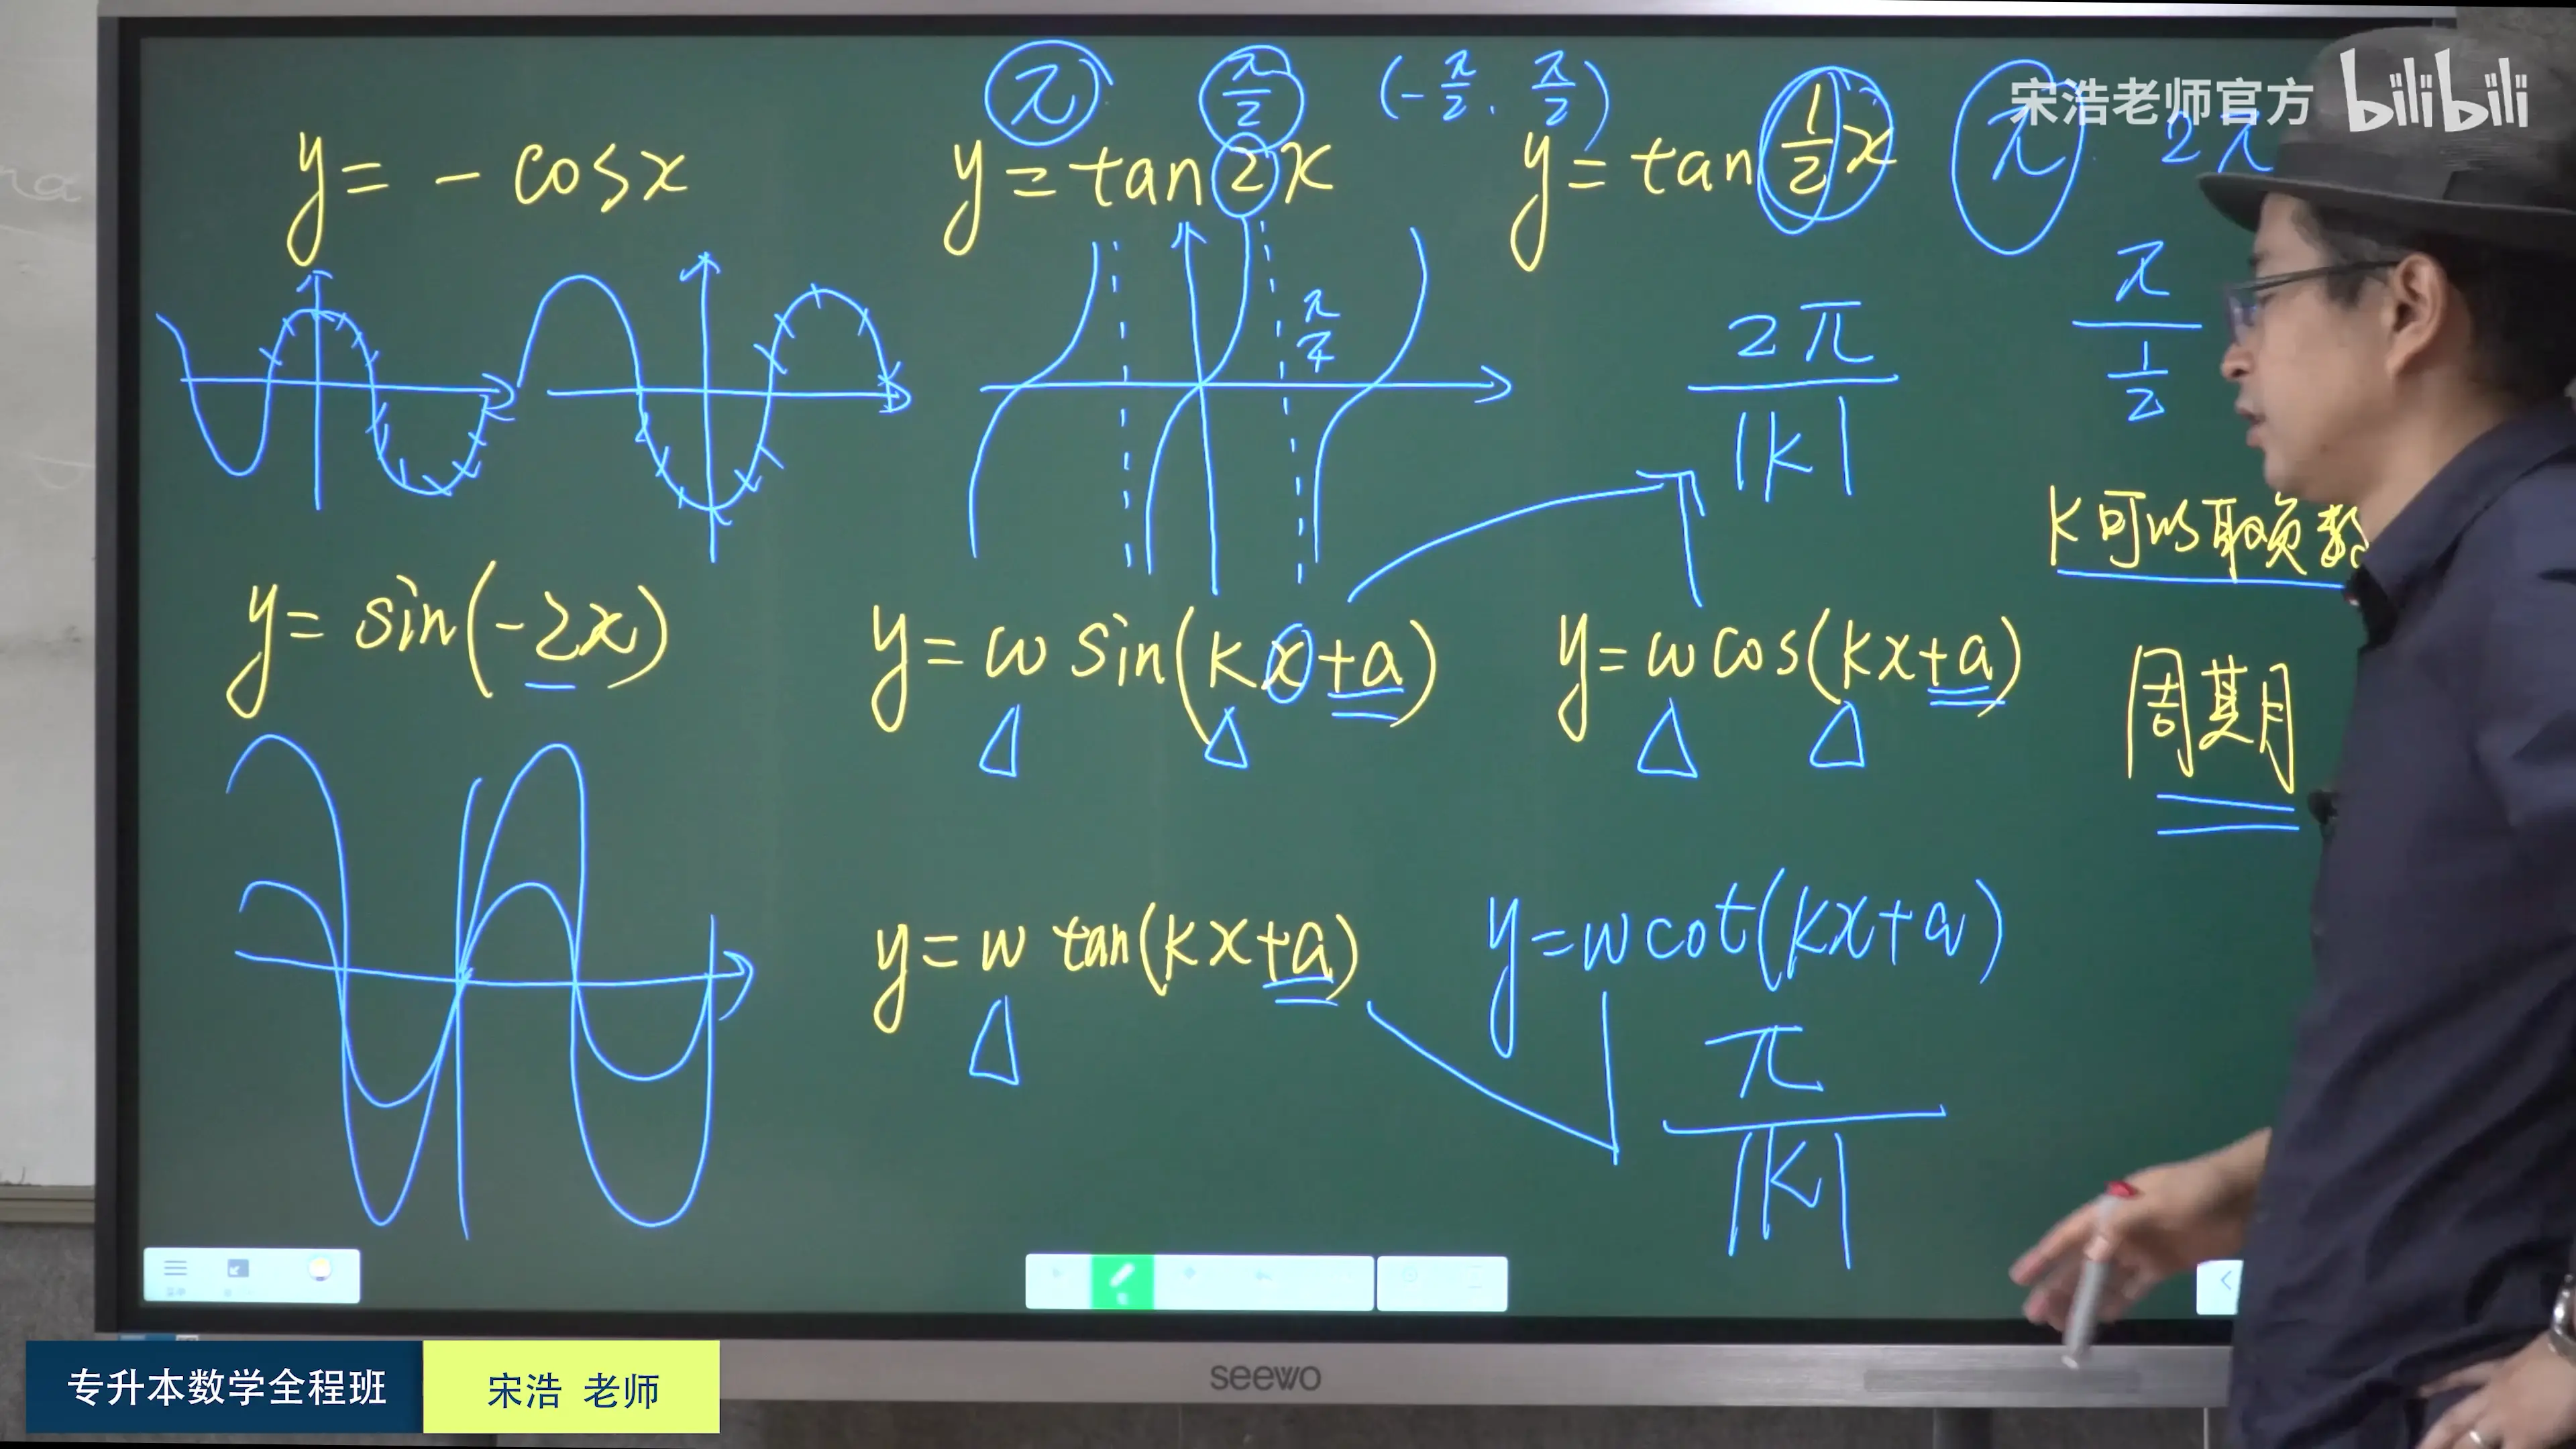 宋浩老师官方 bilibili
π π/2 (-π/2, π/2) π 2π
y = - cosx
y = tan2x
y = tan 1/2 x
π/4
2π/|k|
π/(1/2)
k可以取负数
y = sin(-2x)
y = w sin(kx+a)
y = w cos(kx+a)
周期
y = w tan(kx+a)
y = w cot(kx+a)
π/|k|
seewo
专升本数学全程班
宋浩 老师